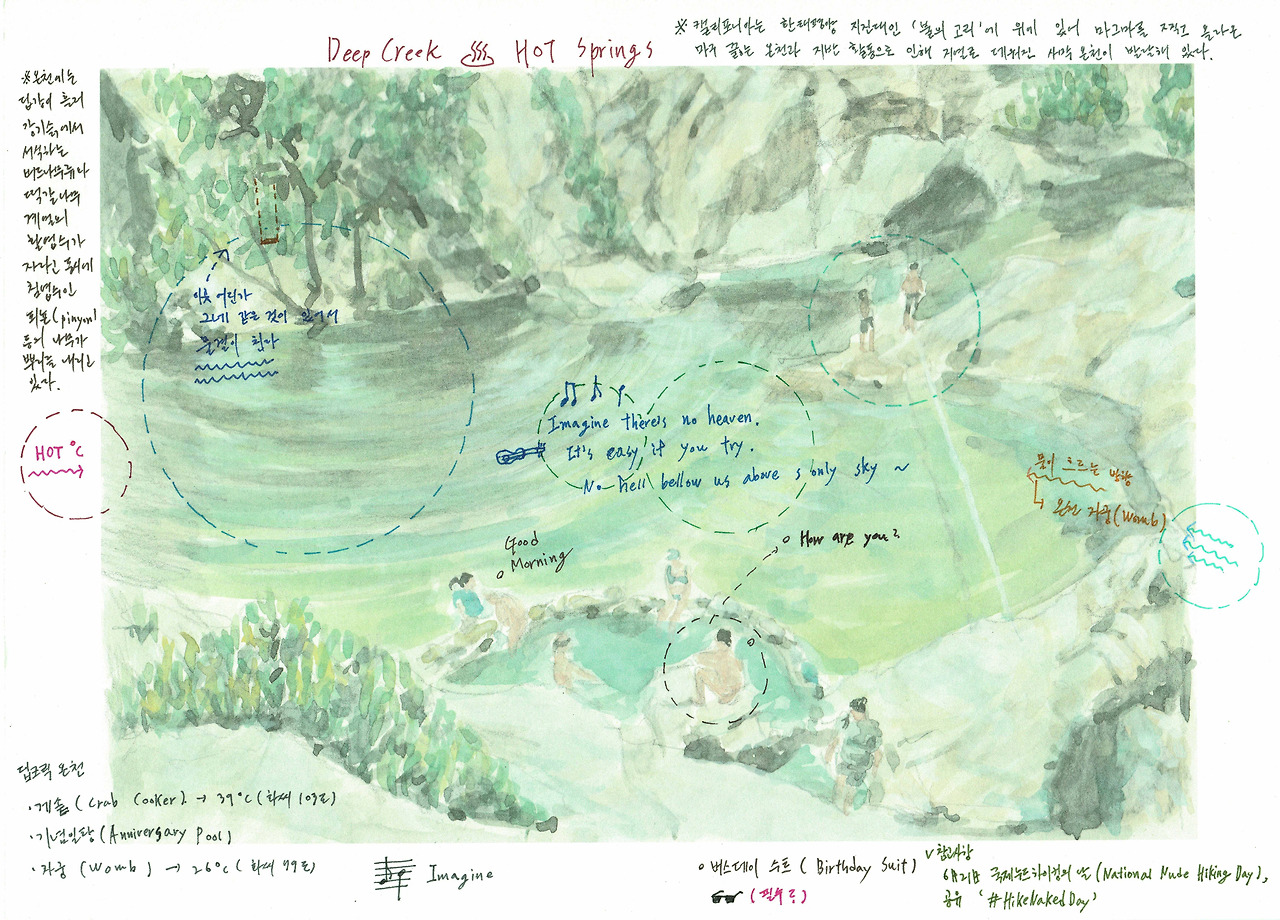 Deep Creek Hot Springs
※ 캘리포니아는 환태평양 지진대인 '불의 고리'에 위치 있어 마그마를 조작고 올라온
마주 끓는 온천과 지반 활동으로 인해 지열로 데워진 사막 온천이 발달해 있다.
※온천에는
딥크릭
강기슭에서
서식하는
버드나무류나
떡갈나무
계열의
활엽수가
자라고
침엽수인
피뇬(pinyon)
등의 나무가
뿌리를 내리고
있다.
이곳 어딘가
그네 같은 것이 있어서
물결이 친다
HOT °C
Imagine there's no heaven.
It's easy if you try.
No hell bellow us above s only sky ~
물이 흐르는 방향
온천 자궁(Womb)
Good
Morning
How are you?
딥크릭 온천
· 게솥 (Crab Cooker) → 39°C (화씨 103도)
· 기념일탕 (Anniversary Pool)
· 자궁 (Womb) → 26°C (화씨 79도)
Imagine
버스데이 수트 (Birthday Suit)
(필수품)
√ 참고사항
6月21日 국제누드하이킹의 날 (National Nude Hiking Day),
공유 '#HikeNakedDay'